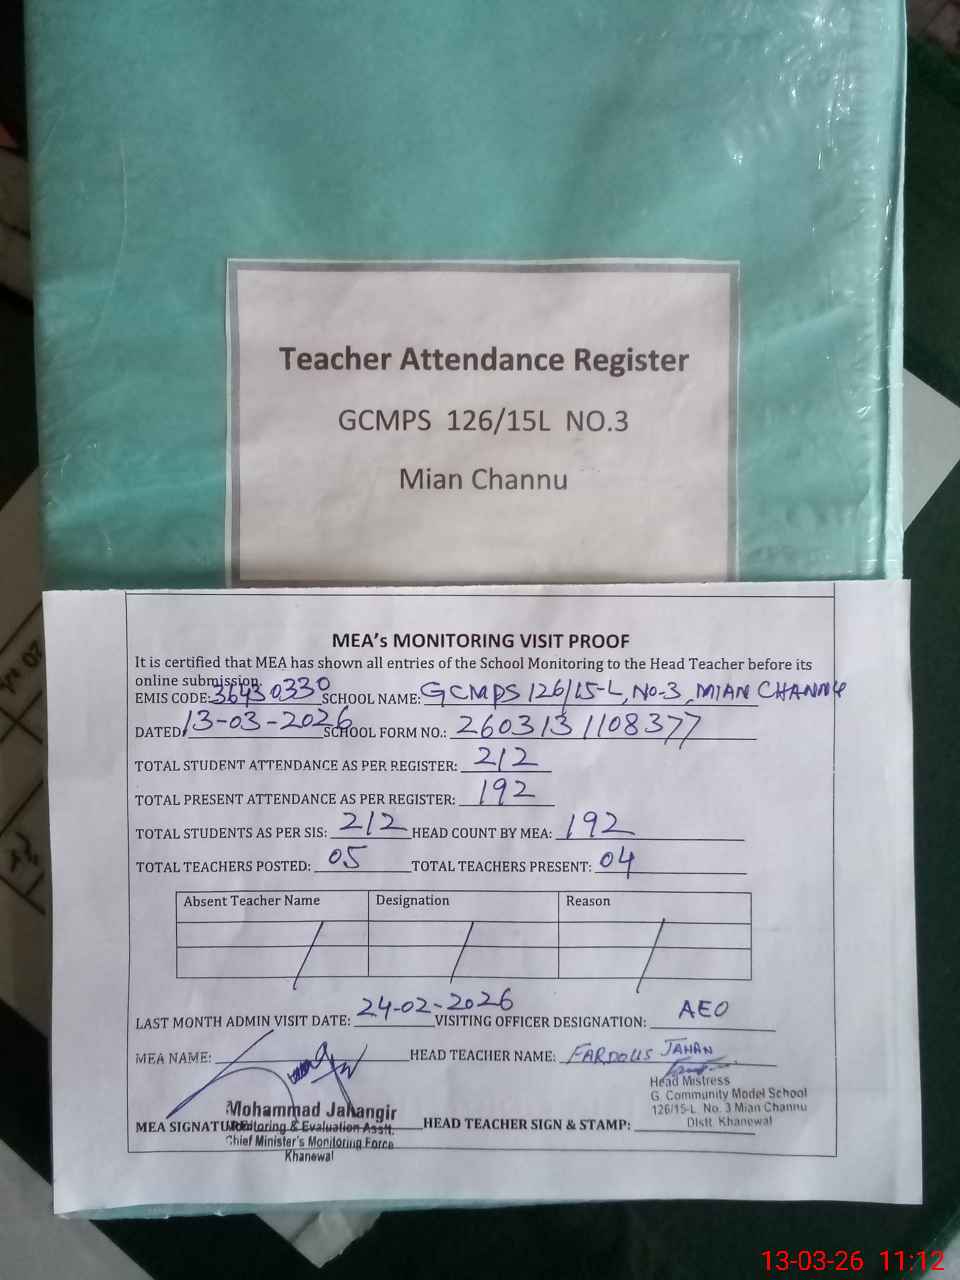 Teacher Attendance Register
GCMPS 126/15L NO.3
Mian Channu
MEA's MONITORING VISIT PROOF
It is certified that MEA has shown all entries of the School Monitoring to the Head Teacher before its
online submission.
EMIS CODE: 36430330 SCHOOL NAME: GCMPS 126/15-L, No-3, MIAN CHANNU
DATED: 13-03-2026 SCHOOL FORM NO.: 2603131108377
TOTAL STUDENT ATTENDANCE AS PER REGISTER: 212
TOTAL PRESENT ATTENDANCE AS PER REGISTER: 192
TOTAL STUDENTS AS PER SIS: 212 HEAD COUNT BY MEA: 192
TOTAL TEACHERS POSTED: 05 TOTAL TEACHERS PRESENT: 04
Absent Teacher Name Designation Reason
LAST MONTH ADMIN VISIT DATE: 24-02-2026 VISITING OFFICER DESIGNATION: AEO
MEA NAME: HEAD TEACHER NAME: FARDOUS JAHAN
Head Mistress
G. Community Model School
126/15-L. No. 3 Mian Channu
Distt. Khanewal
MEA SIGNATURE HEAD TEACHER SIGN & STAMP:
Mohammad Jahangir
Monitoring & Evaluation Asstt.
Chief Minister's Monitoring Force
Khanewal
13-03-26 11:12